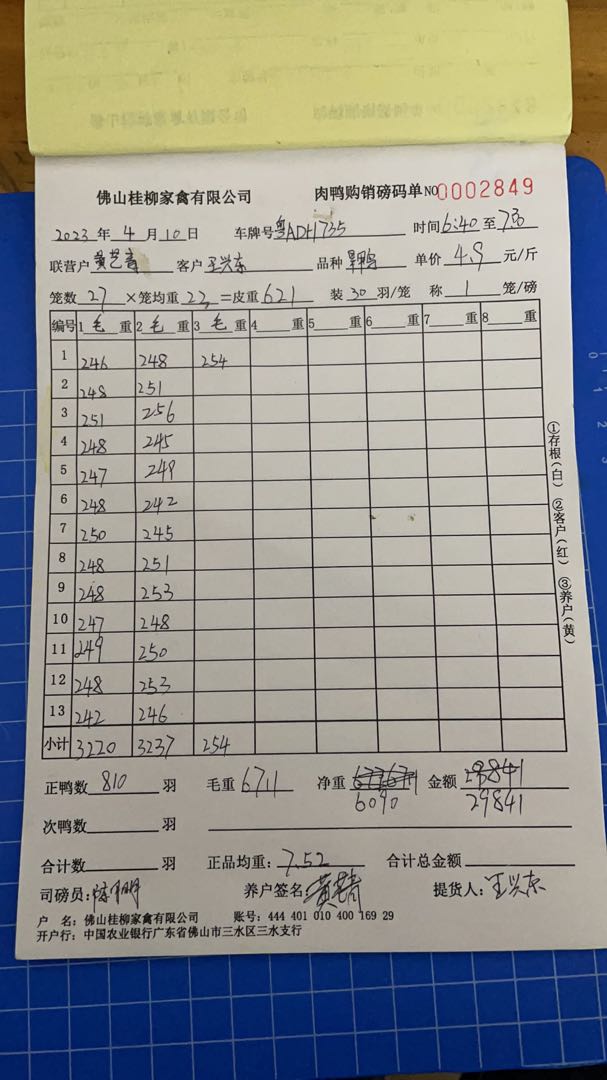 佛山桂柳家禽有限公司 肉鸭购销磅码单 NO 0002849
2023 年 4 月 10 日 车牌号 粤AD41735 时间 6:40 至
联营户 黄艺青 客户 王兴东 品种 单价 4.9 元/斤
笼数 27 ×笼均重 23 =皮重 621 装 30 羽/笼 称 1 笼/磅
编号 1 毛 重 2 毛 重 3 毛 重 4 重 5 重 6 重 7 重 8 重
1 246 248 254
2 248 251
3 251 256
4 248 245
5 247 249
6 248 242
7 250 245
8 248 251
9 248 253
10 247 248
11 249 250
12 248 253
13 242 246
小计 3220 3237 254
正鸭数 810 羽 毛重 6711 净重 6090 金额 29841
29841
次鸭数 羽
合计数 羽 正品均重: 7.52 合计总金额
司磅员: 养户签名: 黄艺青 提货人: 王兴东
户 名: 佛山桂柳家禽有限公司 账号: 444 401 010 400 169 29
开户行: 中国农业银行广东省佛山市三水区三水支行
①存根(白) ②客户(红) ③养户(黄)